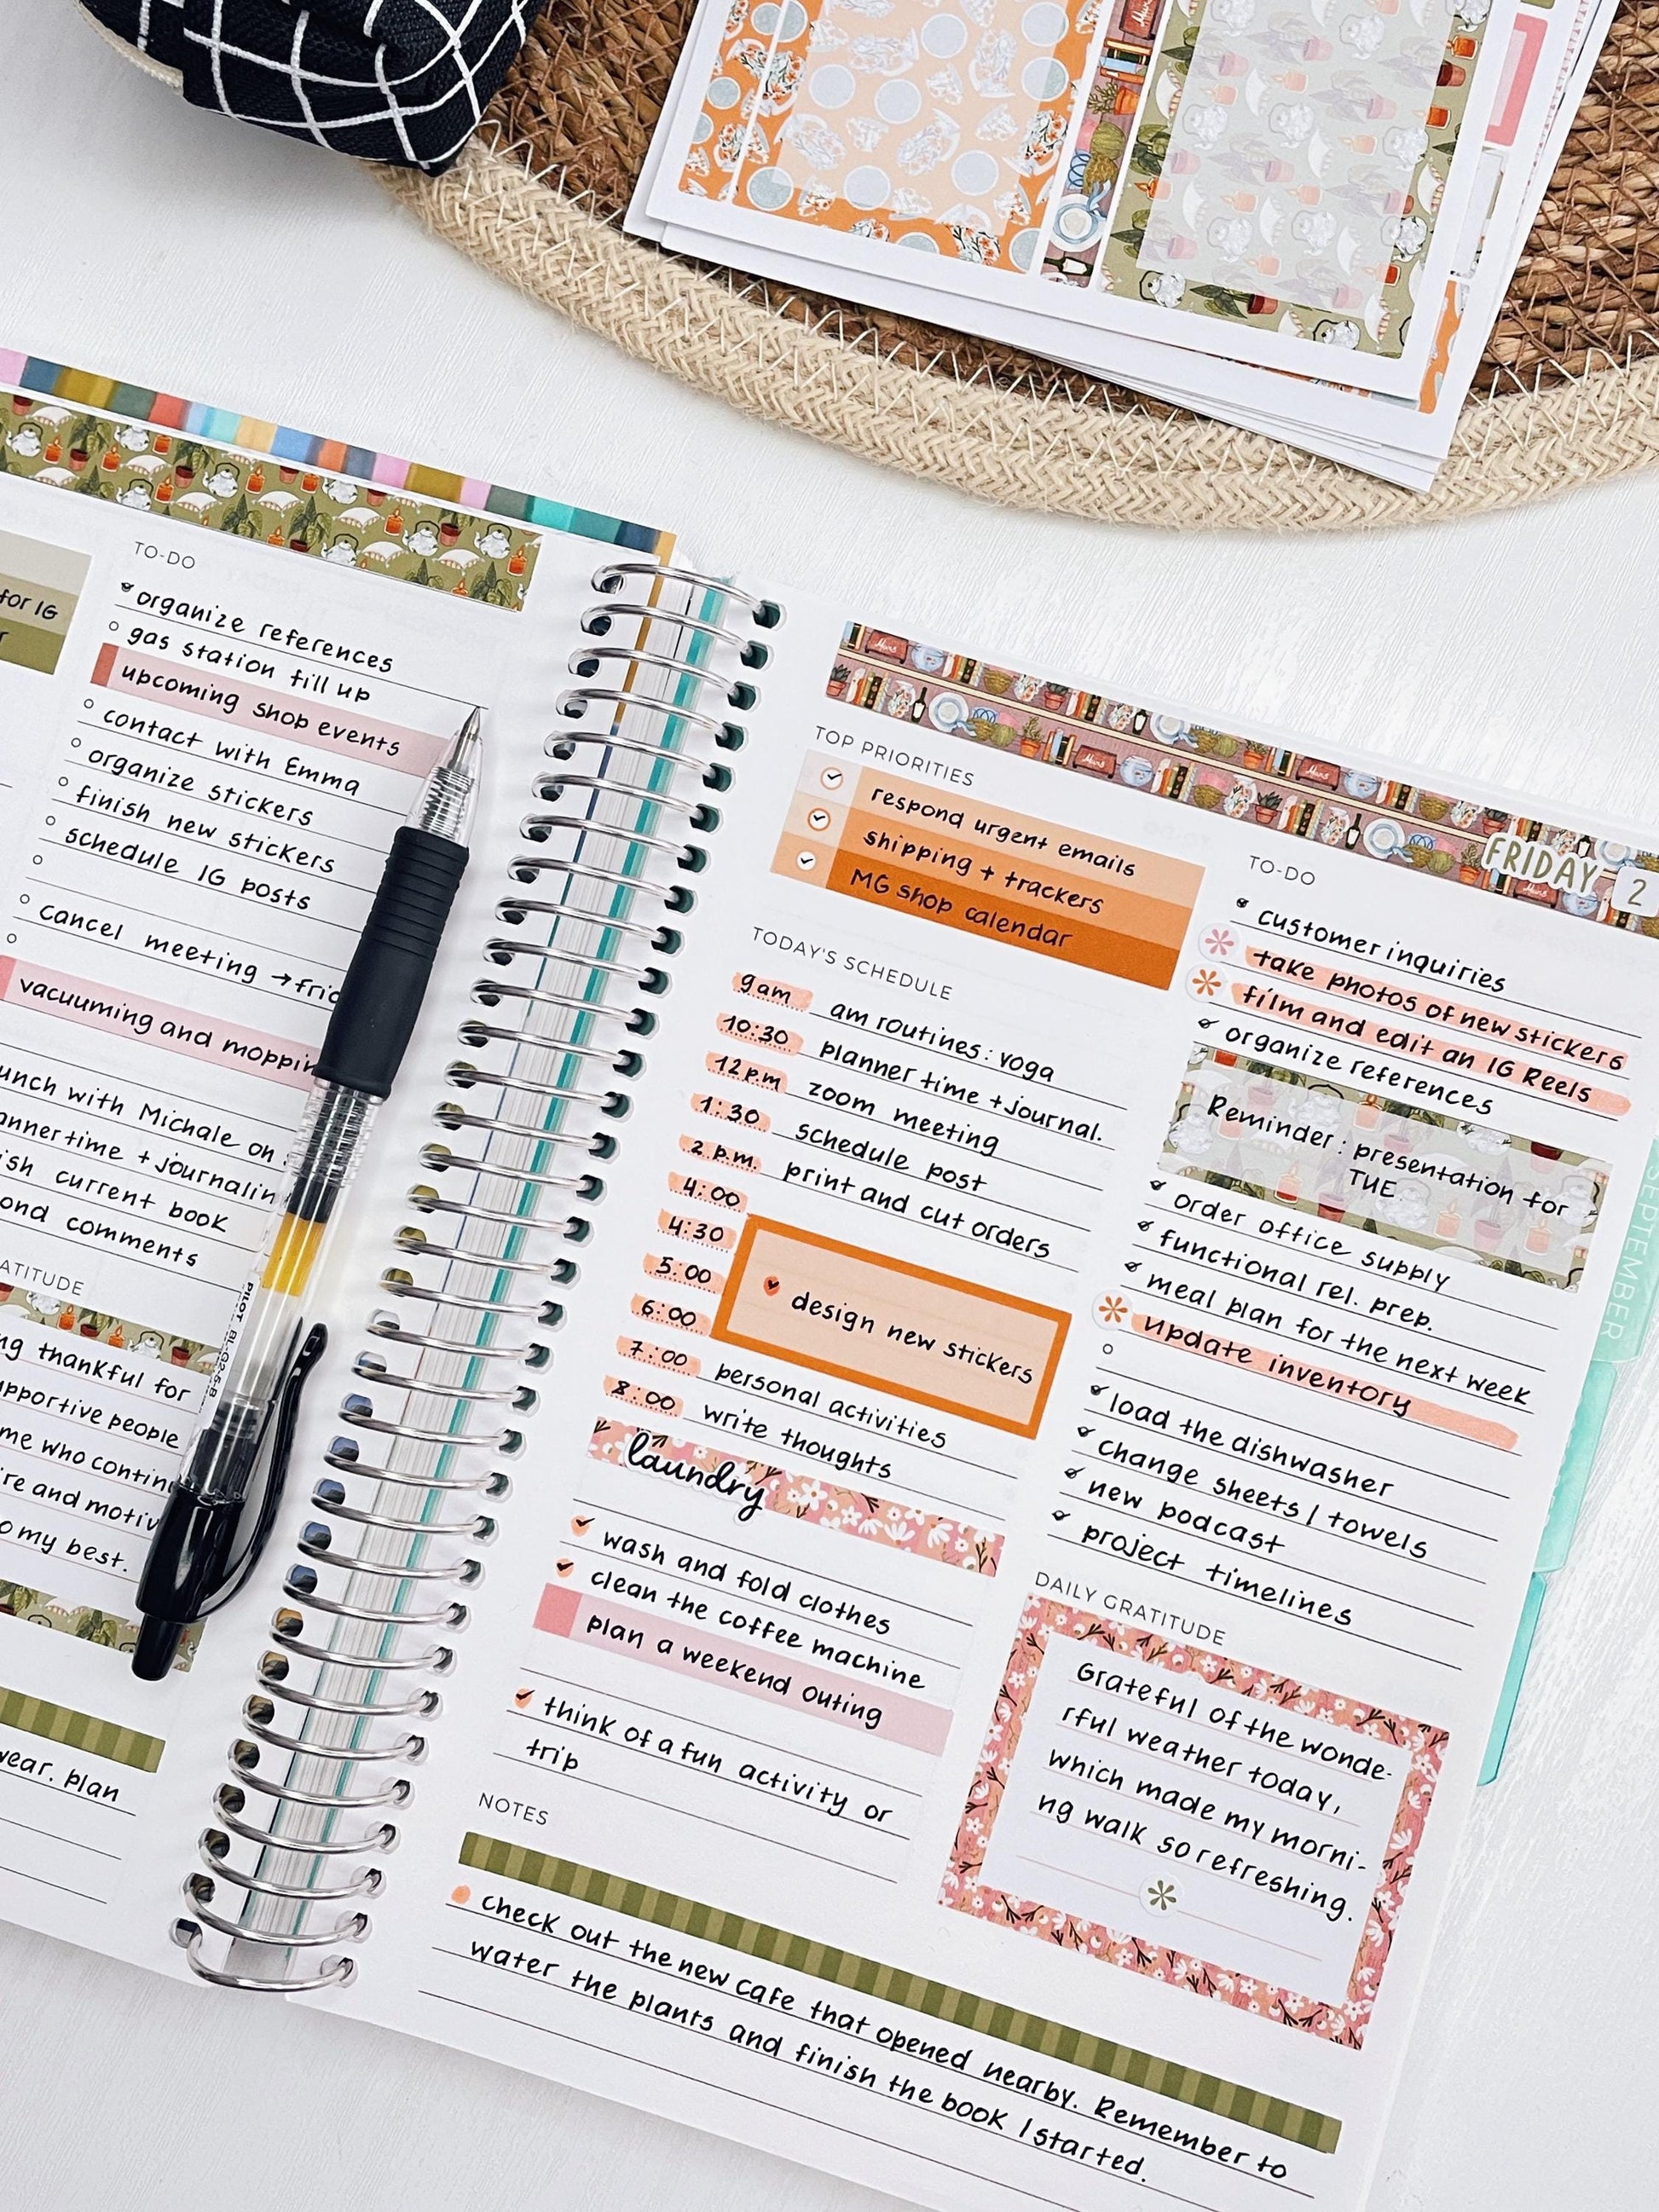 for IG
TO-DO
organize references
gas station fill up
upcoming shop events
contact with Emma
organize stickers
finish new stickers
schedule IG posts
cancel meeting → fri
vacuuming and moppin
unch with Michale on
anner time + journalin
ish current book
ond comments
ATITUDE
ng thankful for
upportive people
me who contin
re and motiv
o my best.
wear. plan
PILOT BL-G2-5-B
TOP PRIORITIES
respond urgent emails
shipping + trackers
MG shop calendar
TODAY'S SCHEDULE
9am am routines: yoga
10:30 planner time + journal.
12p.m zoom meeting
1:30 schedule post
2 p.m. print and cut orders
4:00
4:30
5:00
6:00
design new stickers
7:00 personal activities
8:00 write thoughts
laundry
wash and fold clothes
clean the coffee machine
plan a weekend outing
think of a fun activity or
trip
FRIDAY 2
TO-DO
customer inquiries
take photos of new stickers
film and edit an IG Reels
organize references
Reminder: presentation for
TUE
order office supply
functional rel. prep.
meal plan for the next week
update inventory
load the dishwasher
change sheets / towels
new podcast
project timelines
DAILY GRATITUDE
Grateful of the wonde-
rful weather today,
which made my morni-
ng walk so refreshing.
NOTES
check out the new cafe that opened nearby. Remember to
water the plants and finish the book I started.
SEPTEMBER